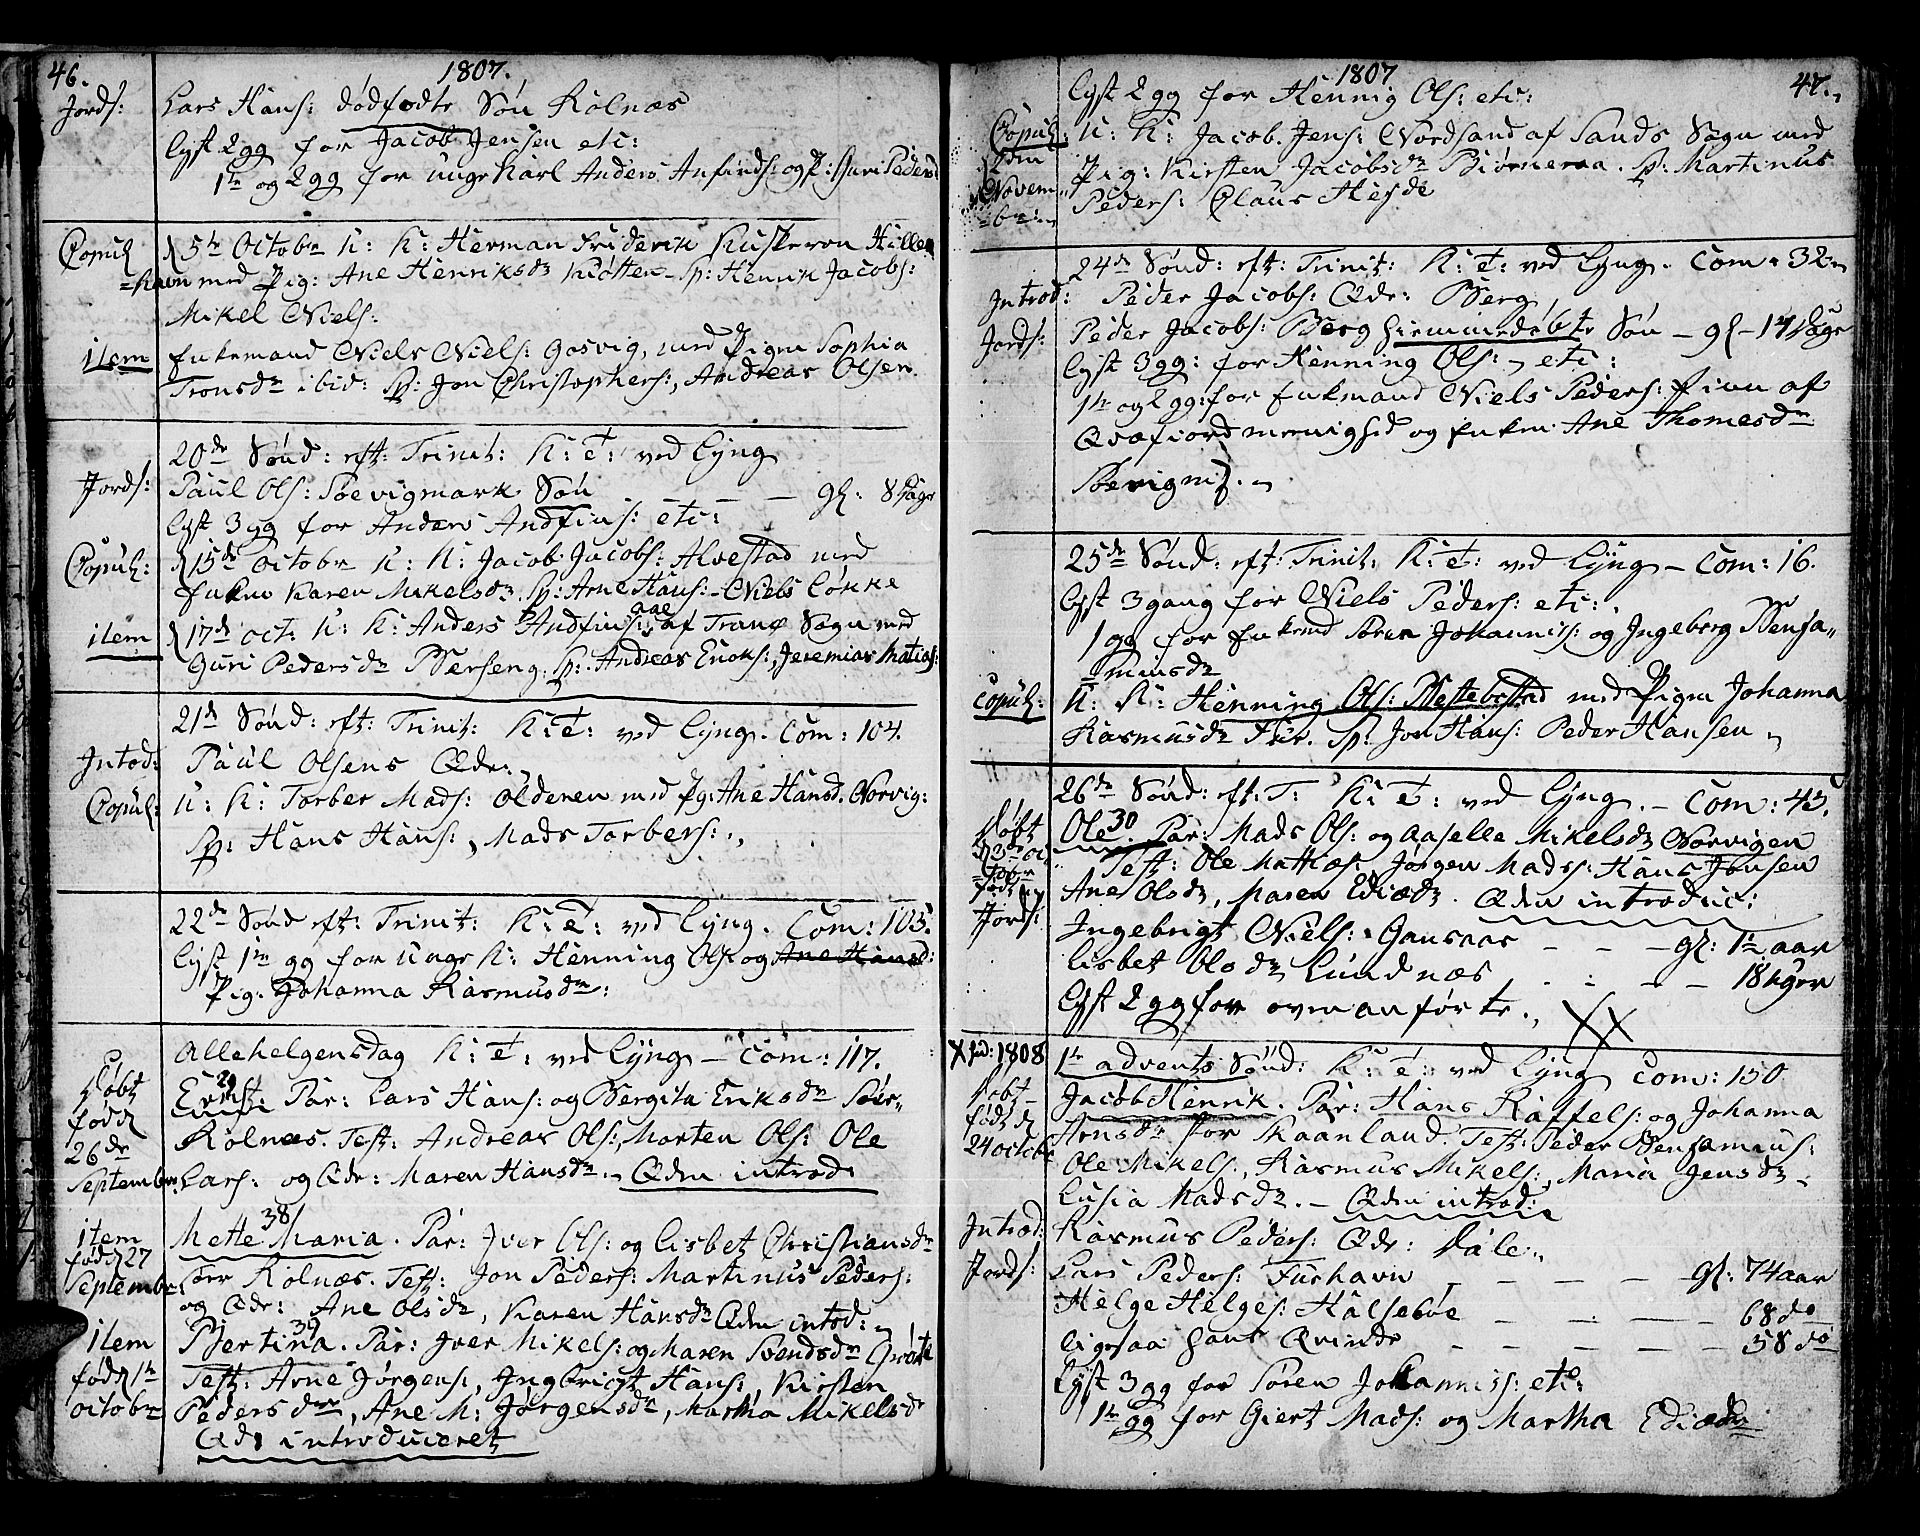 46.
1807.
Jords: Lars Hans: dödfødte Søn Rolnæs
lyst 2 gg for Jacob Jensen etc:
1te og 2 gg for unge Karl Anders Anfinds: og P: Guri Peders
Copul: d 5te Octobr u: K: Herman Friderik Hillen
=havn med Pig: Ane Henriksdr Kiøtten - Sp: Henrik Jacobs:
Mikel Niels:
item Enkemand Niels Niels: Gosvig, med Pigen Sophia
Tronsdr ibid: Sp: Jon Christophers:, Andreas Olsen.
20de Sönd: eft: Trinit: K: T: ved Lÿng
Jords: Paul Ols: Søevigmark Søn — — gl: 8 Dage
lyst 3 gg for Anders Andfins: etc:
Copul: d 15de Octobr u: K: Jacob Jacobs: Alvestad med
Enken Karen Mikelsdr. Sp: Arne Hans: - Niels Løkke
item d 17de oct: u: K: Anders Andfins: aae af Tranø Sogn med
Guri Pedersdr Berseng. Sp: Andreas Eriks:, Jeremias Matias:
21de Sönd: eft: Trinit: K: T: ved Lÿng. Com: 104.
Intod: Paul Olsens Qde:
Copul: u: K: Torber Mads: Olderen med Pg: Ane Hansd. Norvig:
Sp: Hans Hans:, Mads Torbers:,
22de Sönd eft: Trinit: K: T: ved Lÿng. Com: 103.
lyst 1te gg for unge K: Henning Ols: og Ane Hansd:
Pig: Johanna Rasmusdr:
Allehelgensdag K: T: ved Lÿng - Com: 117.
Døbt
født
26de
September
29
Ernst Par: Lars Hans: og Bergita Eriksdr Sør-
Rolnæs. Test: Andreas Ols:, Morten Ols: Ole
Lars: og Qde: Maren Hansdr. - Qden introd:
item
født 27
September
38
Mette Maria. Par: Iver Ols: og Lisbet Christiansdr
Sør Rolnæs. Test: Jon Peders: Martinus Peders:
og Qde: Ane Olsdr, Karen Hansdr Qden intod:
item
født 1te
octobr
39
Bertina. Par: Iver Mikels: og Maren Svendsdr Grøtte
Test: Arne Jørgens:, Ingbrigt Hans:, Kirsten
Pedersdr, Ane M: Jørgensdr, Martha Mikelsdr
Qde introduceret
1807
47.
lyst 2 gg for Hennig Ols: etc:
Copul:
d 2den
Novem-
=br:
u: K: Jacob Jens: Nordsand af Sands Sogn med
Pig: Kirsten Jacobsdr Biørneraa. Sp: Martinus
Peders: Claus
24de Sönd: eft: Trinit: K: T: ved Lÿng. Com. 32
Introd: Peder Jacobs: Qde: Berg
Jords: Peder Jacobs: Berg hiemmedøbte Søn - gl - 14 Dage
lyst 3 gg: for Henning Ols: etc:
1te og 2 gg: for Enkemand Niels Peders: Finn af
Qvæfiord menighed og Enken Ane Thomesdr
25de Sönd: eft: Trinit: K: T: ved Lÿng - Com: 16.
lyst 3 gang for Niels Peders: etc:
1 gg for Enkemd Søren Johannis: og Ingeborg Benja-
=minsdr
Copul: u: K: Henning Ols: Mettebestad med Pigen Johanna
Rasmusdr Sp: Jon Hans: Peder Hansen
26de Sönd: eft: T: K: T: ved Lÿng. - Com: 43.
Døbt
30
Ole. Par: Mads Ols: og Aaselle Mikelsdr Norvigen
Test: Ole Mathias: Jørgen Mads: Hans Jonsen
Ane Olsdr, Maren Ediædr. Qden introduc:
Jords: Ingebrigt Niels: Gausaas — — gl: 1te aar
Lisbet Olsdr Lundnæs — — 18 Uger
lyst 2 gg for ovenanførte. XX
X Ind: 1808
1te advents Sönd: K: T: ved Lÿng Com: 150
Døbt
født d
24 octobr
Jacob Henrik. Par: Hans Raffels: og Johanna
Arnsdr Skaanland. Test: Peder Benjaminus:
Ole Mikels:, Rasmus Mikels:, Maria Jensdr,
Lusia Madsdr. - Qden introd:
Introd: Rasmus Peders: Qde: Dale
Jords: Lars Peders: Furhavn — — gl: 74 aar
Helge Helges: Halsebøe — — 68 do
ligesaa hans Qvinde — — 58 do
lyst 3 gg for Søren Johannis: etc:
1te gg for Giert Mads: og Martha Ediædr